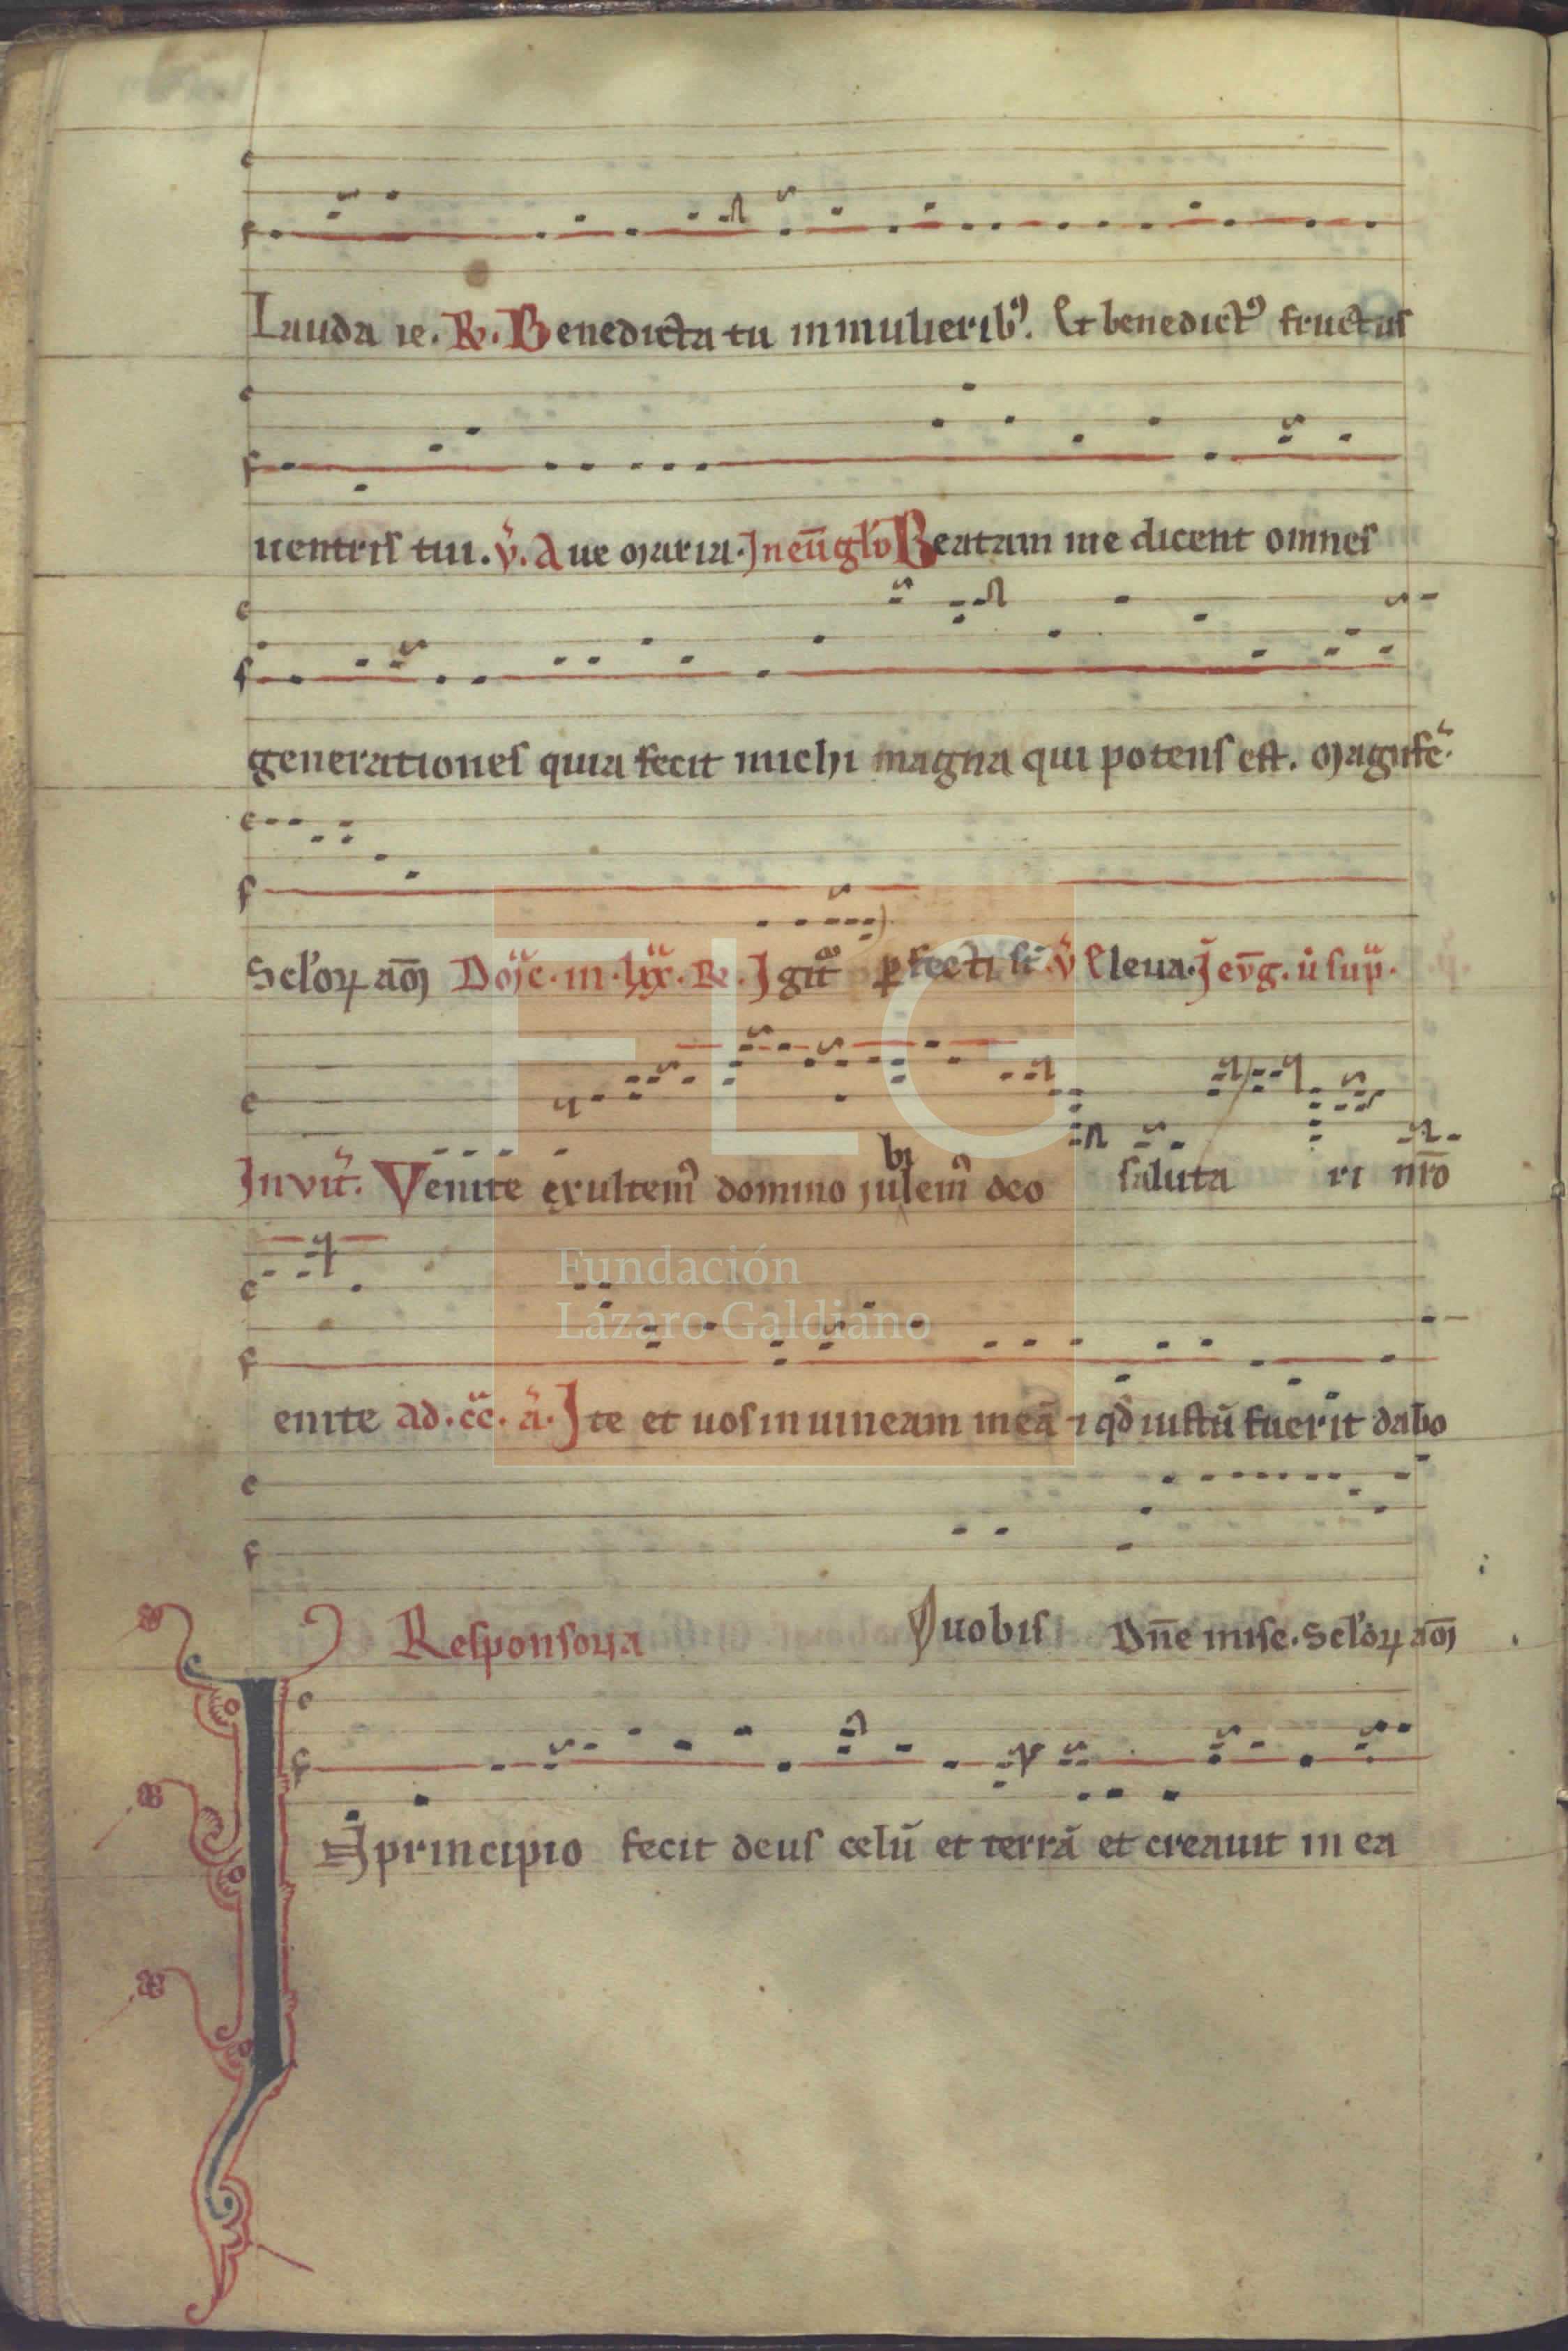 Lauda ie. R. Benedicta tu in mulierib9. Et benedict9 fructus
uentris tui. v. Aue maria. In eungło Beatam me dicent omnes
generationes quia fecit michi magna qui potens est. Magnife.
Scłoꝝ am Domc. in. lxx. R. Igit ꝑfecti st v Eleua. J evg. u sup.
Invit. Venite exultem9 domino iulem9 deo saluta ri nro
bi
enite ad. cc. a. Ite et uos in uineam meā ⁊ qd iustū fuerit dabo
Responsoria uobis Dn̄e mise. Scłoꝝ am
In principio fecit deus celū et terrā et creauit in ea
FLG
Fundación
Lázaro Galdiano